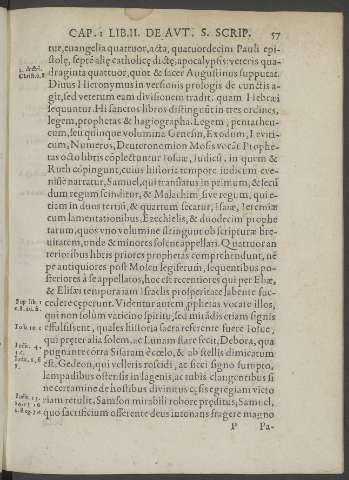 CAP. 1 LIB. II. DE AVT. S. SCRIP. 57
tur, euangelia quattuor, acta, quatuordecim Pauli epi-
stolę, septē alię catholicę dictę, apocalypsis: veteris qua-
draginta quattuor, quot & facer Augustinus supputat.
Diuus Hieronymus in versionis prologis de cunctis a-
git, sed veterum eam diuisionem tradit, quam Hebræi
sequuntur. Hi sanctos libros distinguūt in tres ordines,
legem, prophetas & hagiographa. Legem, pentatheu-
cum, seu quinque volumina Genesin, Exodum, Leuiti-
cum, Numeros, Deuteronomion Mosis vocāt. Prophe-
tas octo libris cōplectuntur Iosuæ, Iudicū, in quem &
Ruth cōpingunt, cuius historia tempore iudicum eue-
nisse narratur, Samuel, qui translatus in primum, & secū
dum regum scinditur, & Malachim siue regum, qui e-
tiam in duos tertiū, & quartum secatur, Isaiæ, Ieremiæ
cum lamentationibus, Ezechielis, & duodecim prophe
tarum, quos vno volumine stringunt ob scripturæ bre-
uitatem, vnde & minores solent appellari. Quattuor an
terioribus libris priores prophetas comprehendunt, nē
pe antiquiores post Mosen legiferum, sequentibus po-
steriores à se appellatos, hoc est recentiores qui per Eliæ,
& Elisæi tempora iam Israelis prosperitate labente suc-
cedere ceperunt. Videntur autem prophetas vocare illos,
qui non solum vaticinio spiritu, sed mirādis etiam signis
effulsissent, quales historia sacra referente fuere Iosue,
qui pręter alia solem, ac Lunam stare fecit, Debora, qua
pugnante cōtra Sisaram è cœlo, & ob stellis dimicatum
est. Gedeon, qui velleris roscidi, ac sicci signo sumpto,
lampadibus ostensis in lagenis, ac tubis clangentibus si
ne certamine de hostibus diuinitus cęsis egregiam victo
riam retulit. Samson mirabili robore pręditus, Samuel,
quo sacrificium offerente deus intonans fragore magno
P Pa-
Iosu. 10. c
Iudic. 4.